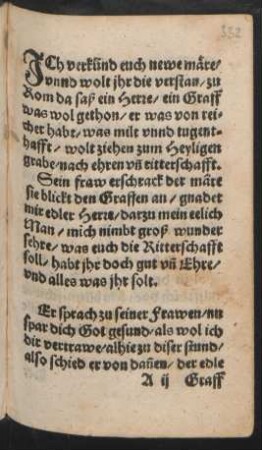 352
ICh verkünd euch newe märe/
vnnd wolt jhr die verstan/ zu
Rom da saß ein Herre/ ein Graff
was wol gethon/ er was von rei-
cher habt/ was milt vnnd tugent-
hafft/ wolt ziehen zum Heyligen
grabe/ nach ehren vñ ritterschafft.
Sein fraw erschrack der märe
sie blickt den Graffen an/ gnadet
mir edler Herre/ darzu mein eelich
Man/ mich nimbt groß wunder
sehre/ was euch die Ritterschafft
soll/ habt jhr doch gut vñ Ehre/
vnd alles was jhr solt.
Er sprach zu seiner Frawen/ nu
spar dich Got gesund/ als wol ich
dir vertrawe/ alhie zu diser stund/
also schied er von dañen/ der edle
A ij Graff